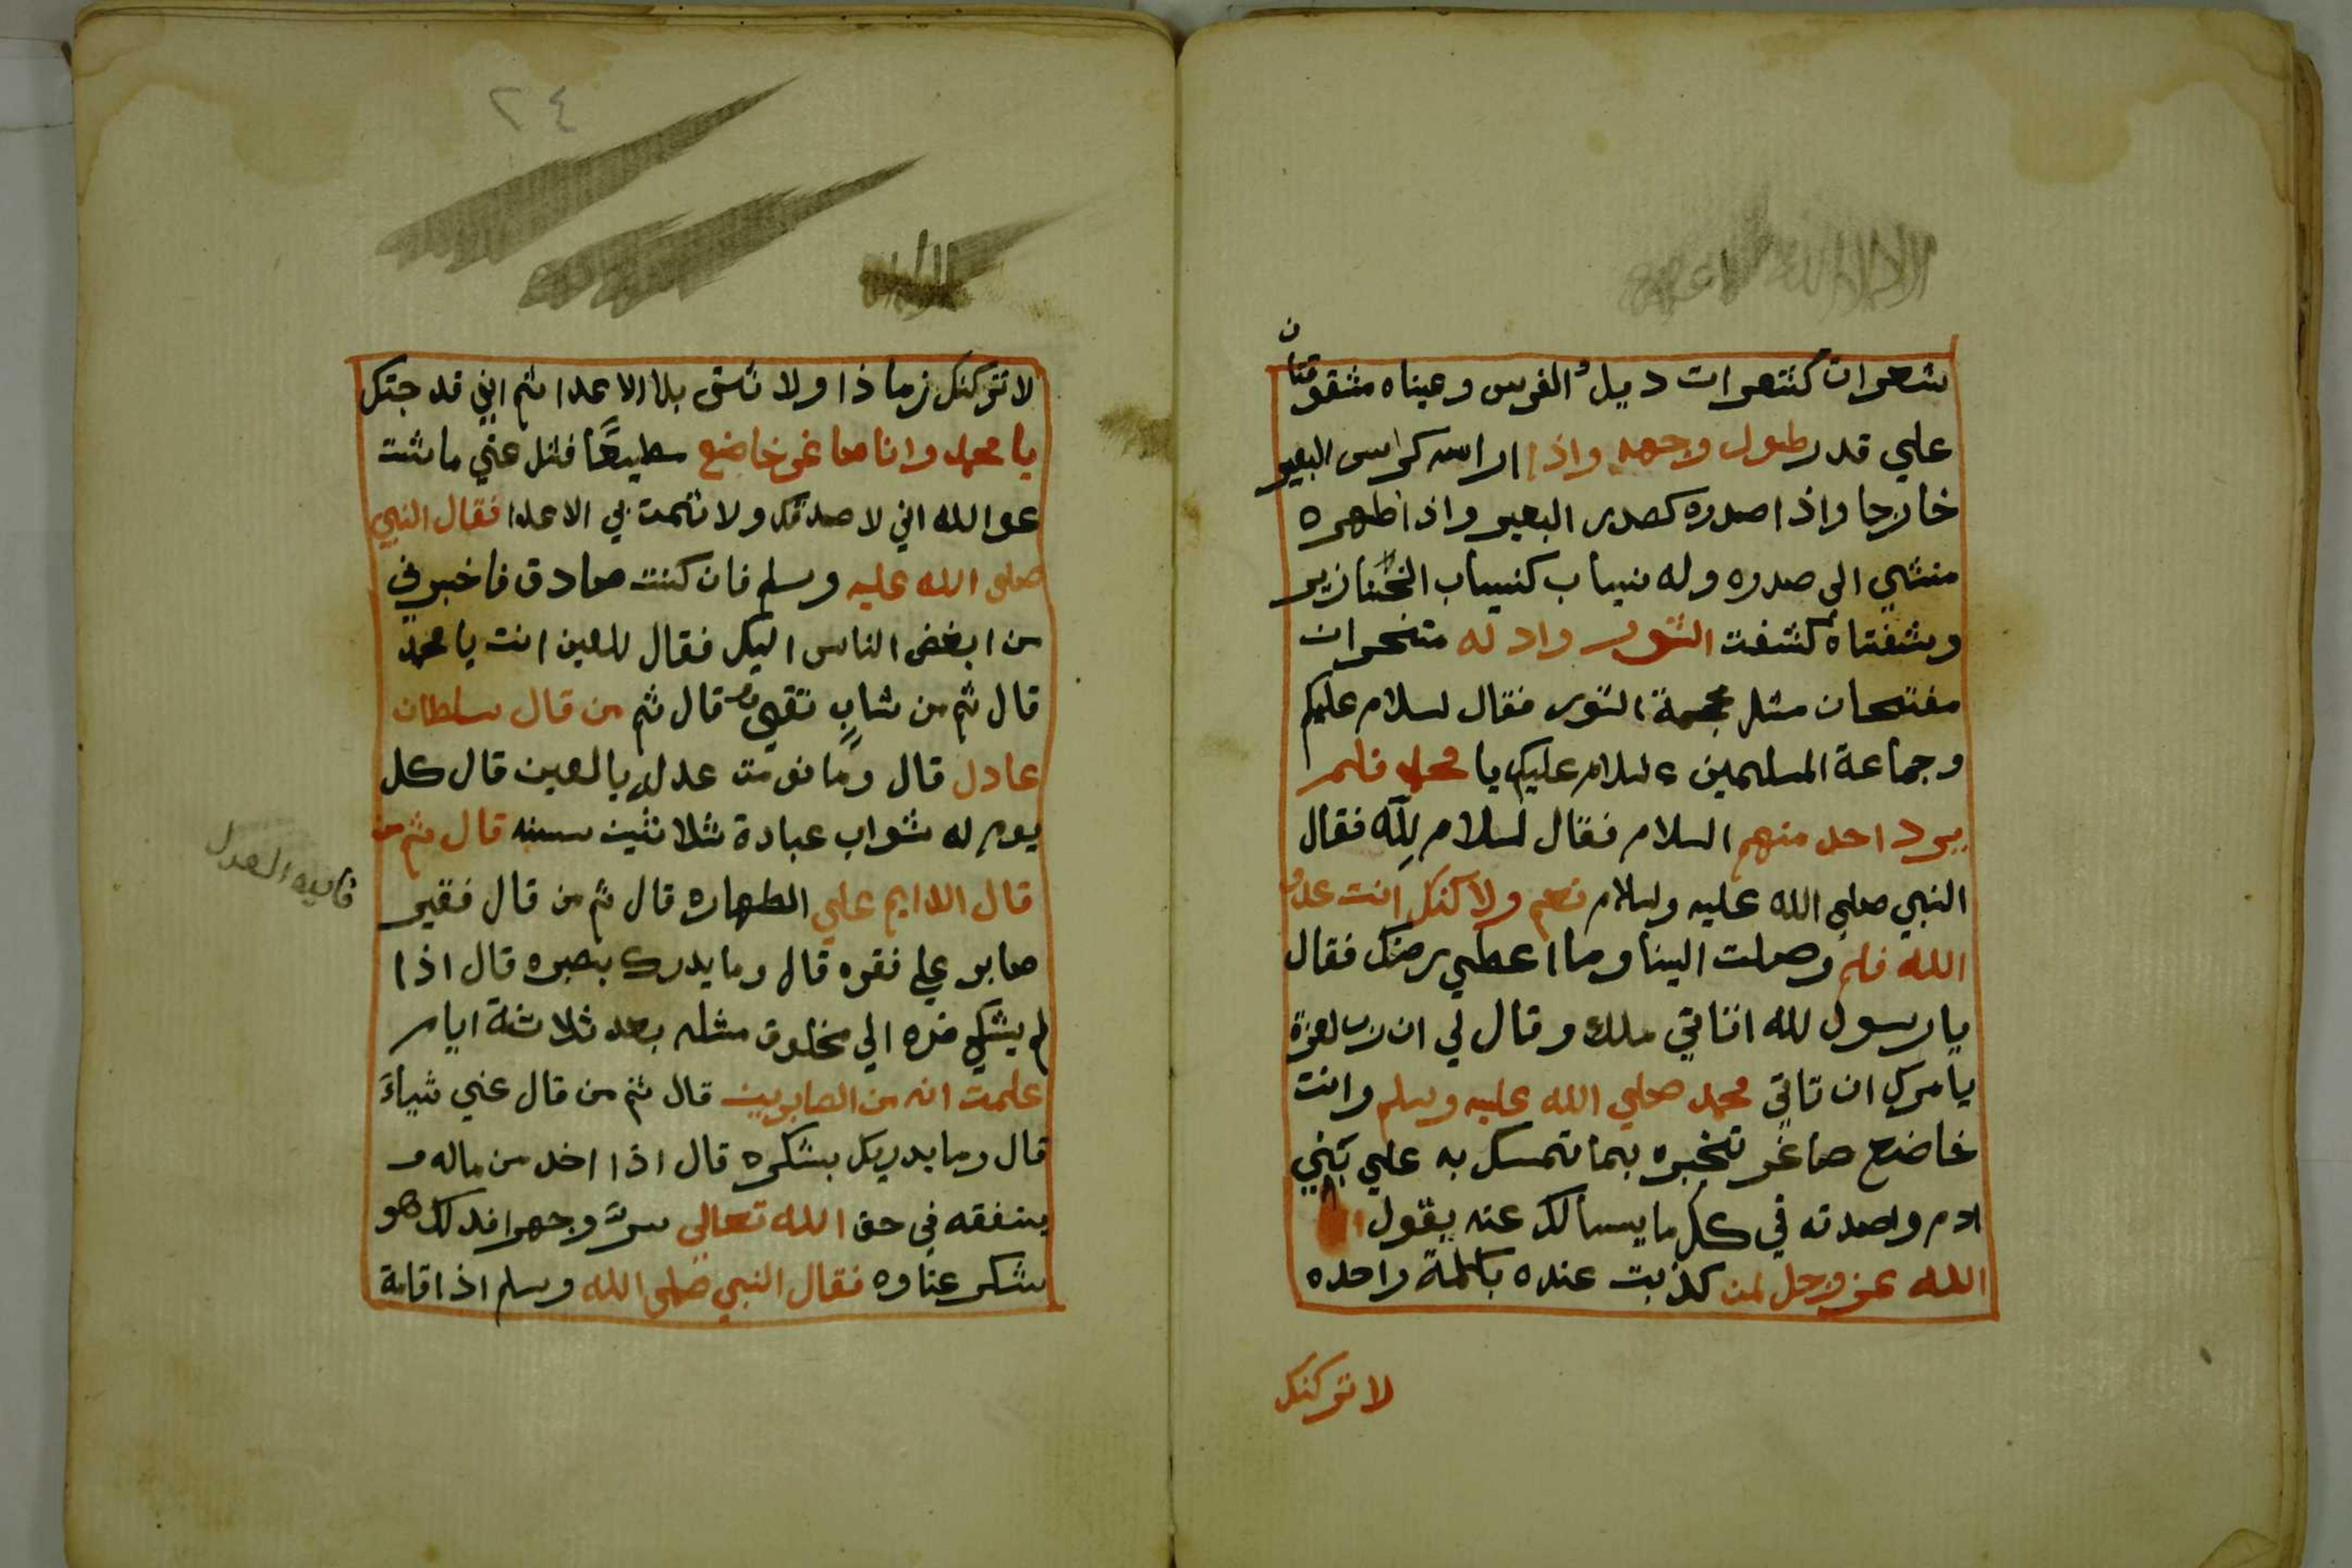 شعرات كشعرات ديل الفرس وعيناه مشقوقتان
علي قدر طول وجهه واذا اراسه كراس البعير
خارجا واذا صدوره كصدر البعير واذا ظهره
منثني الى صدره وله نيباب كنيباب الخنازير
وشفتاه كشفت الثور واد له منخران
مفتحان مثل مجمة الثور فقال لسلام عليكم
وجماعة المسلمين السلام عليكم يا محمد فلم
يرد احد منهم السلام فقال لسلام لله فقال
النبي صلي الله عليه وسلام نعم ولاكنك انت عدو
الله فلم وصلت الينا وما اعطي رضك فقال
يا رسول لله اتاني ملك وقال لي ان رب لعزة
يامرك ان تاتي محمد صلي الله عليه وسلم وانت
خاضع صاغر تخبره بما تمسك به علي بني
ادم واصدقه في كل ما يسالك عنه يقول
الله عز وجل لمن كذبت عنده بكلمة واحده
لا تركنك
٢٤
لا تركنك زماذا ولا تشق بلا الاعدا ثم اني قد جتك
يا محمد وانا صاغر خاضع سطيعًا فسل عني ما شت
عو الله اني لا صدقك ولا تشمت بي الاعدا فقال النبي
صلى الله عليه وسلم فان كنت صادق فاخبرني
من ابغض الناس اليك فقال للعين انت يا محمد
قال ثم من شابٍ تقي قال ثم من قال سلطان
عادل قال وما نو مت عدل يا لعين قال كل
يوم له ثواب عبادة ثلاثين سنه قال ثم من
قال الدايم علي الطهاره قال ثم من قال فقير
صابر علي فقره قال وما يدرك بصبره قال اذا
لم يشكي ضره الي مخلوق مثله بعد ثلاثة ايام
علمت انه من الصابرين قال ثم من قال غني شياءً
قال وما يدريك بشكره قال اذا اخد من ماله و
ينفقه في حق الله تعالى سرً وجهرا فدلك هو
شكر عناوه فقال النبي صلى الله وسلم اذا قامة
العدل